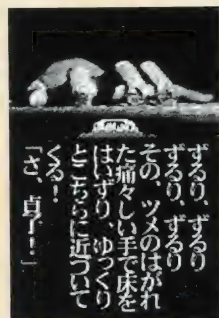 ずるり、ずるり
ずるり、ずるり
その、ツメのはがれ
た痛々しい手で床を
はいずり、ゆっくり
とこちらに近づいて
くる!
「さ、貞子!」